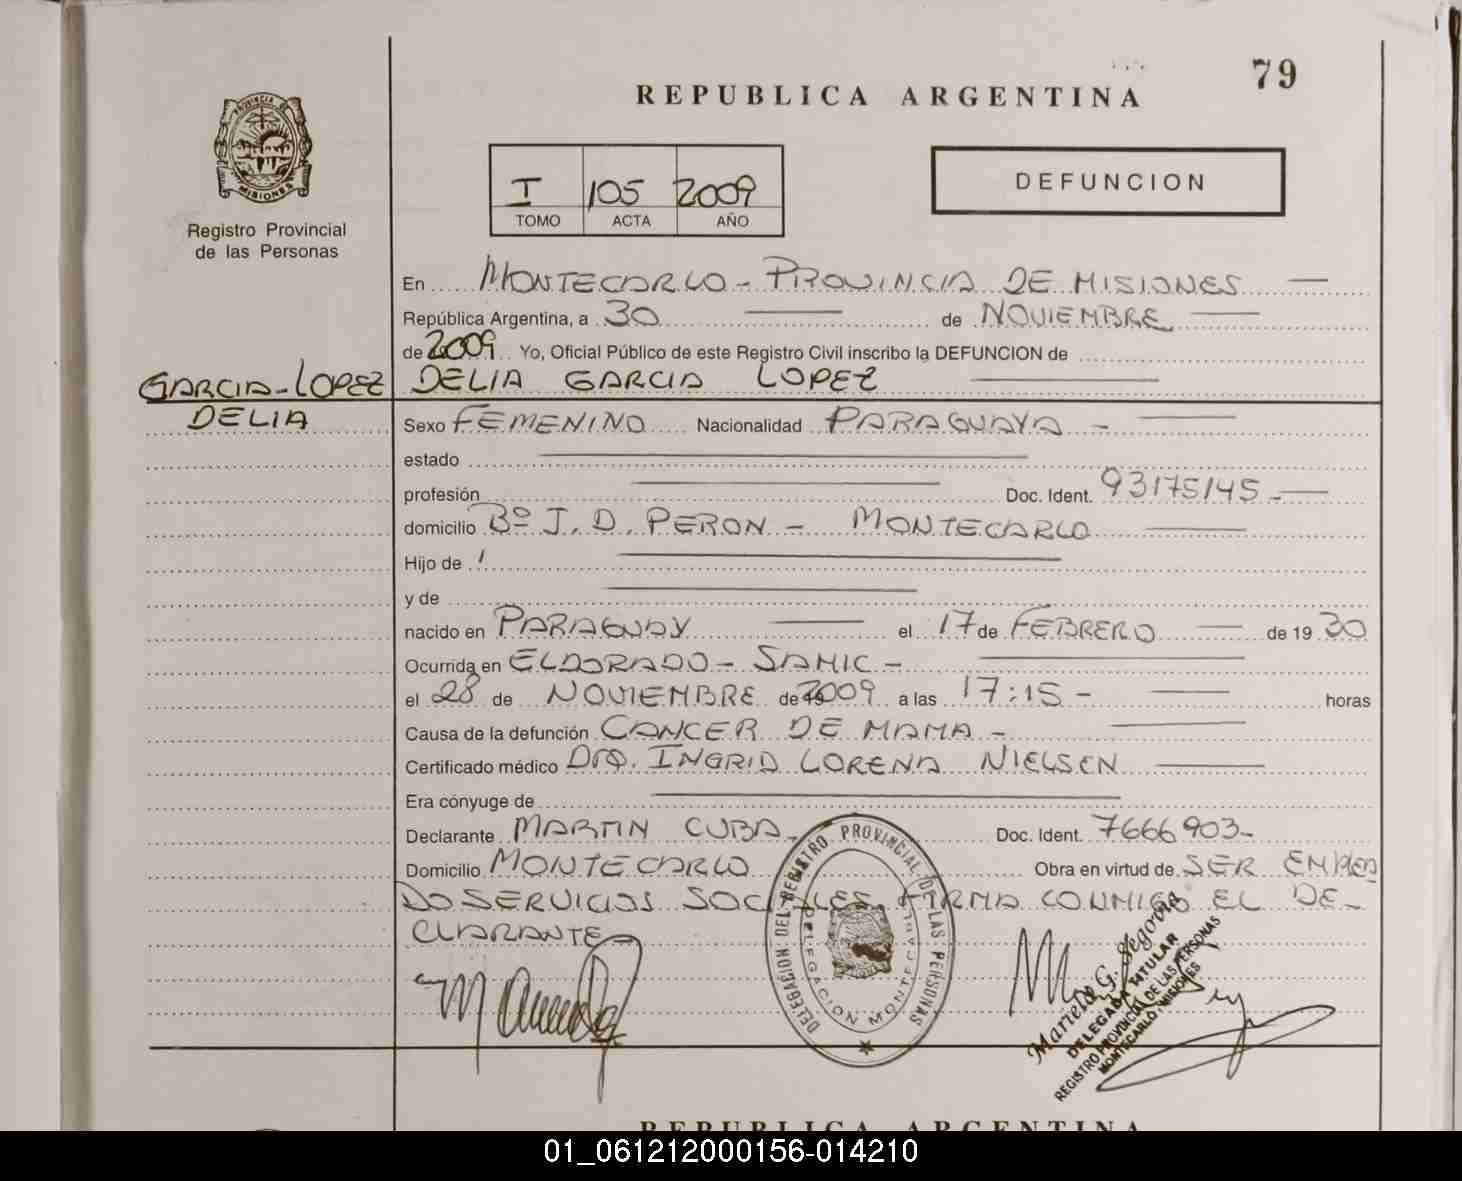 79
REPUBLICA ARGENTINA
PROVINCIA DE
MISIONES
Registro Provincial
de las Personas
I 105 2009
TOMO ACTA AÑO
DEFUNCION
En MONTECARLO - PROVINCIA DE MISIONES
República Argentina, a 30 de NOVIEMBRE
de 2009 Yo, Oficial Público de este Registro Civil inscribo la DEFUNCION de
GARCIA-LOPEZ DELIA GARCIA LOPEZ
DELIA
Sexo FEMENINO Nacionalidad PARAGUAYA -
estado
profesión Doc. Ident. 93175145-
domicilio Bº J. D. PERON - MONTECARLO
Hijo de
y de
nacido en PARAGUAY el 17 de FEBRERO de 19 30
Ocurrida en ELDORADO - SAMIC -
el 28 de NOVIEMBRE de 2009 a las 17:15 - horas
Causa de la defunción CANCER DE MAMA -
Certificado médico Dra. INGRID LORENA NIELSEN
Era cónyuge de
Declarante MARTIN CUBA- Doc. Ident. 7666903-
Domicilio MONTECARLO Obra en virtud de SER EMPLEA
DO SERVICIOS SOCIALES. FIRMA CONMIGO EL DE-
CLARANTE
DELEGACION DEL REGISTRO PROVINCIAL DE LAS PERSONAS
DELEGACION MONTECARLO
Mariela G. Segovia
DELEGADA TITULAR
REGISTRO PROVINCIAL DE LAS PERSONAS
MONTECARLO - MISIONES
REPUBLICA ARGENTINA
01_061212000156-014210